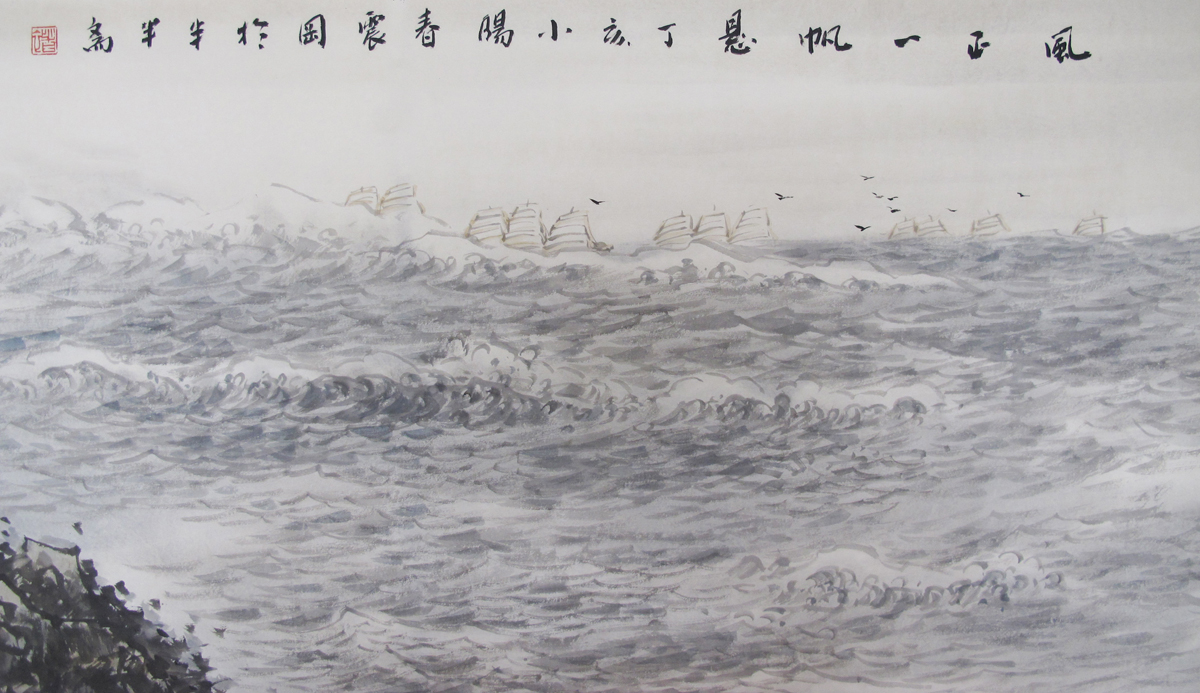 風正一帆懸丁亥小陽春震岡於半半斋